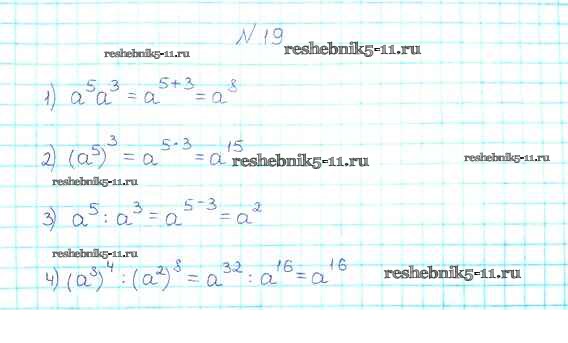 № 19
reshebnik5-11.ru reshebnik5-11.ru
1) a⁵a³ = a⁵⁺³ = a⁸
2) (a⁵)³ = a⁵·³ = a¹⁵ reshebnik5-11.ru reshebnik5-11.ru
reshebnik5-11.ru
3) a⁵ : a³ = a⁵⁻³ = a²
reshebnik5-11.ru
4) (a⁸)⁴ : (a²)⁸ = a³² : a¹⁶ = a¹⁶ reshebnik5-11.ru